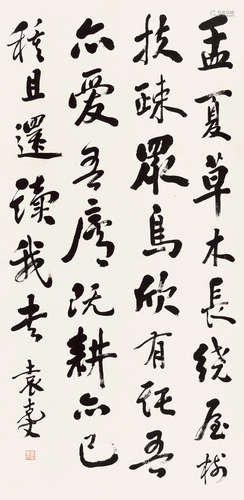 孟夏草木長繞屋樹
扶疎眾鳥欣有託吾
亦愛吾廬既耕亦已
種且還讀我書 袁克文